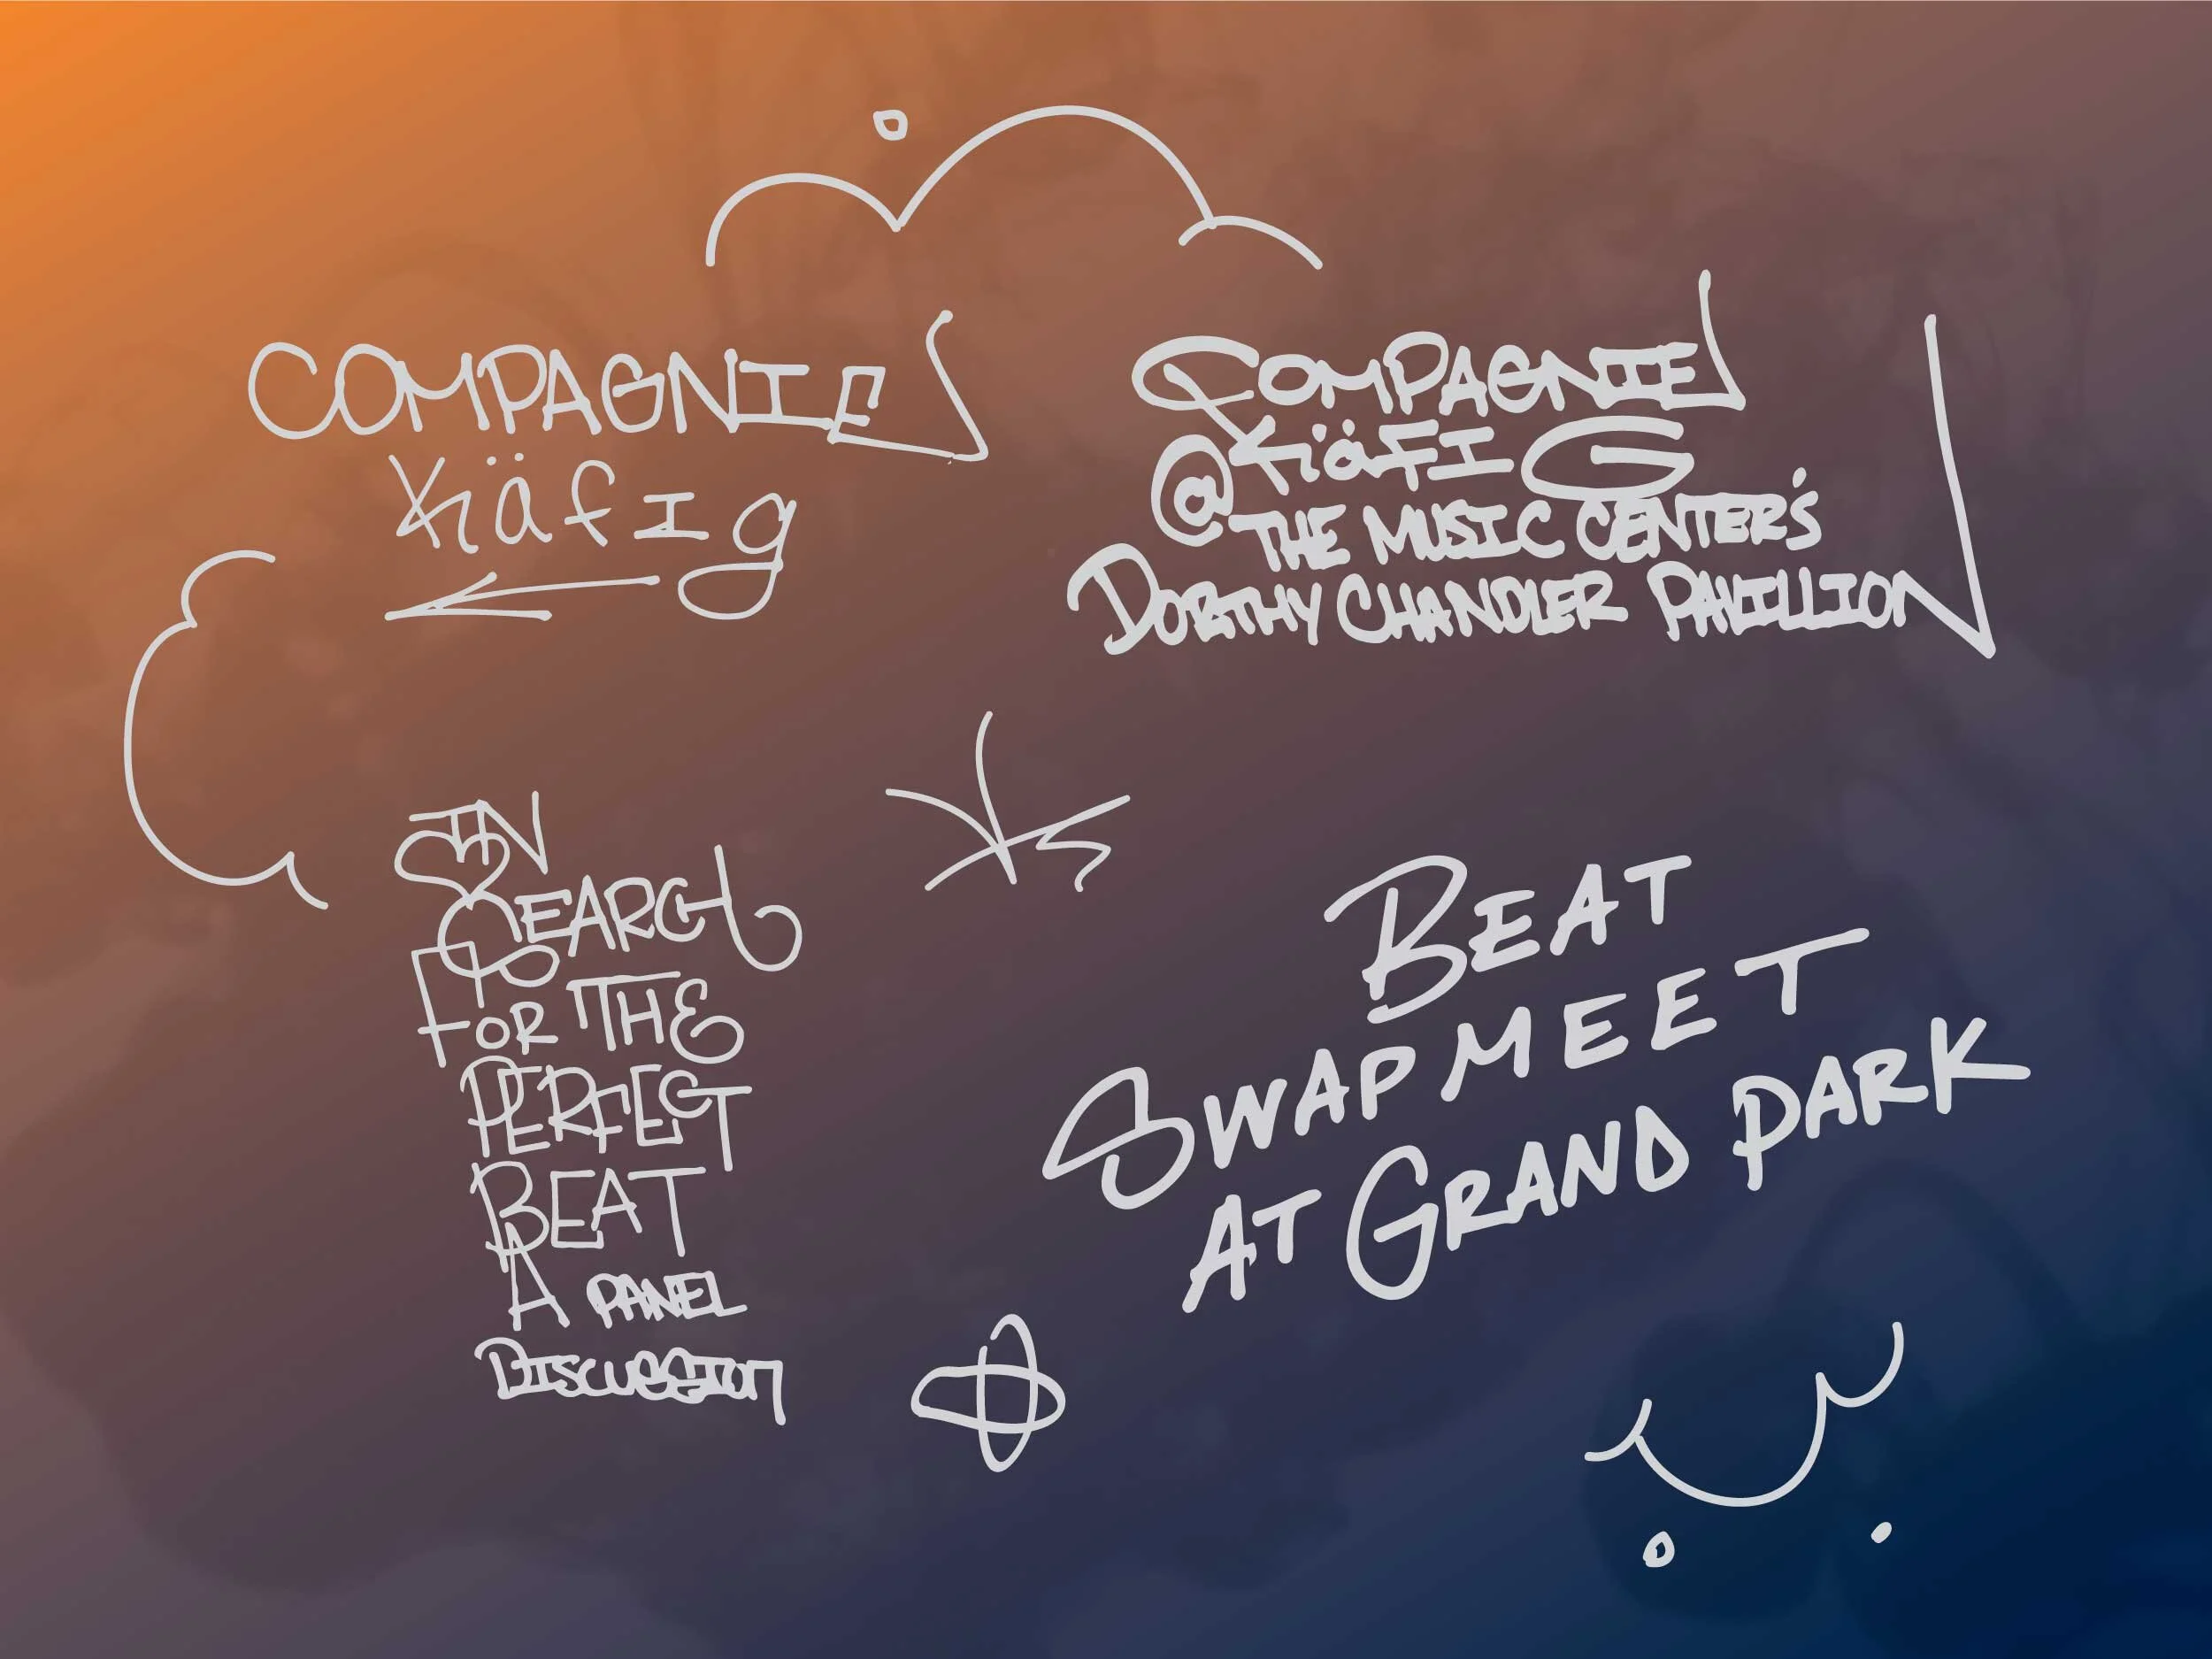 COMPAGNIE
Käfig
COMPAGNIE
KäFIG
@ THE MUSIC CENTER'S
DORTHY CHANDLER PAVILLION
IN
SEARCH
FOR THE
PERFECT
BEAT
A PANEL
DISCUSSION
BEAT
SWAPMEET
AT GRAND PARK